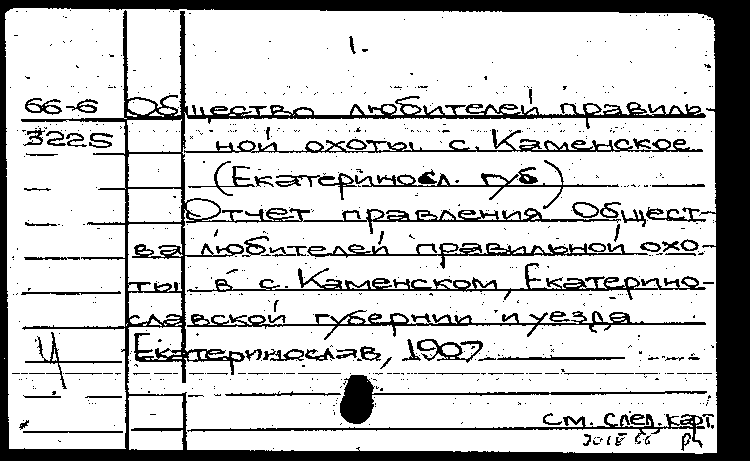 1.
66-6 Общество любителей правиль-
3225 ной охоты. с. Каменское
(Екатеринос л. губ.)
Отчет правления Общест-
ва любителей правильной охо-
ты в с. Каменском, Екатерино-
славской губернии и уезда.
Ч Екатеринослав, 1907
см. след. карт.